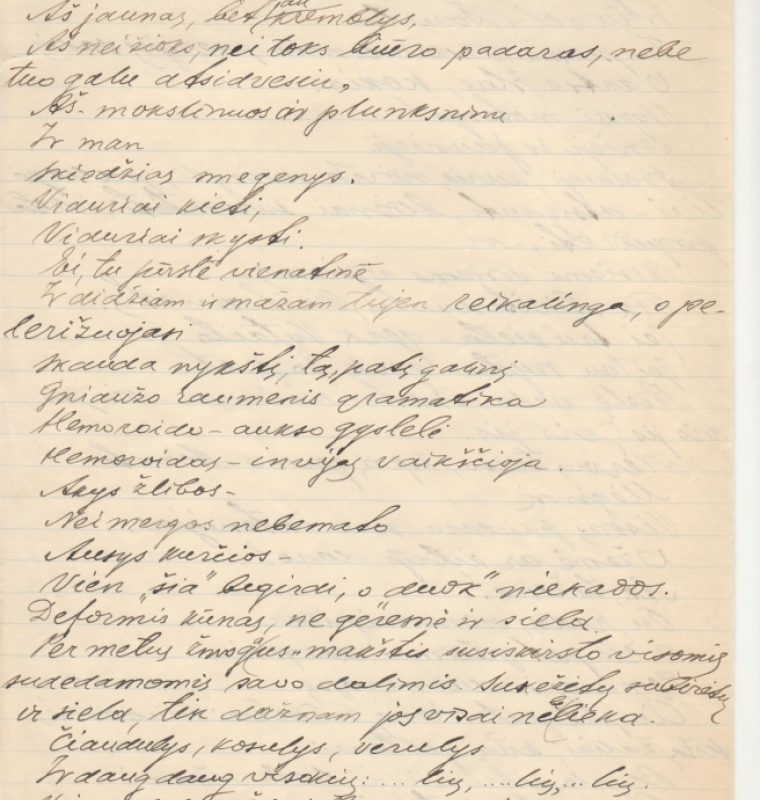 Aš jaunas, bet jau kremolys,
Aš nei šioks, nei toks biuro padaras, nebe
tuo galu atsidvesiu,
Aš - mokslinuos ar plunksninu
Ir man
skiedžias smegenys.
Viduriai kieti,
Viduriai skysti.
Ei, tu pūrslė vienatinė
Ir didžiam ir mažam reikalinga, o pe-
lerižuojasi
skauda nykštį, tą patį gaunį
Gniaužo raumenis gramatika
Hemoroido - aukso gyslelė
Hemoroidas - in vijas vaikščioja.
Akys žlibos -
Nei mergos nebemato
Ausys kurčios -
Vien „šia" begirdi, o „duok" niekados.
Deformis kūnas, ne geresnė ir siela
Per metus žmogaus makštis susiskirsto visomis
sudedamomis savo dalimis.
ir siela, tik dažnam jos visai nelieka.
Čiaudulys, kosulys, verulys
Ir daug daug visokių: ... lių, .... lių, ... lių.